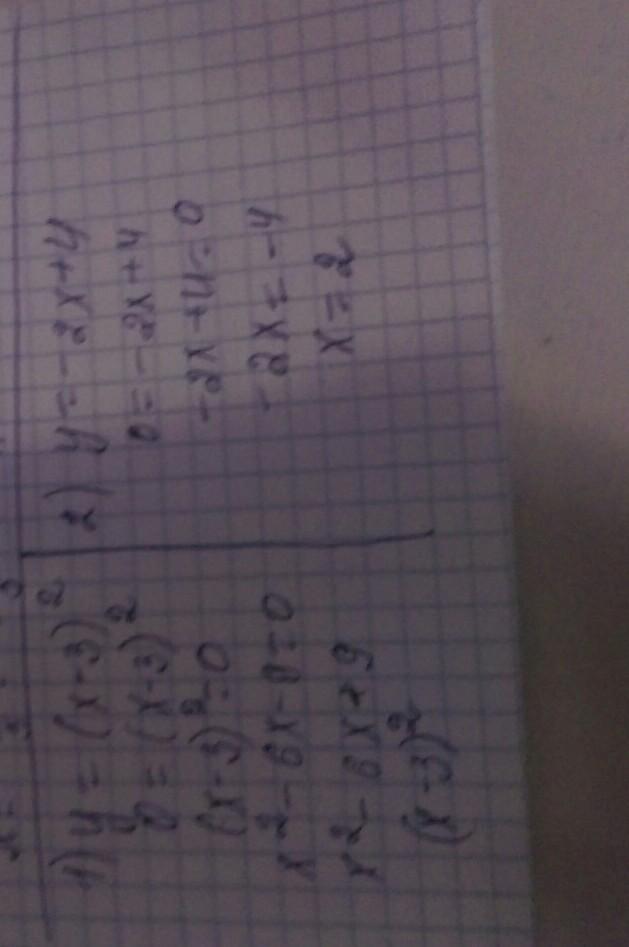 1) y = (x-3)²
0 = (x-3)²
(x-3)² = 0
x² - 6x - 9 = 0
x² - 6x + 9
(x-3)²
2) y = -2x+4
0 = -2x+4
-2x+4=0
-2x = -4
x = 2